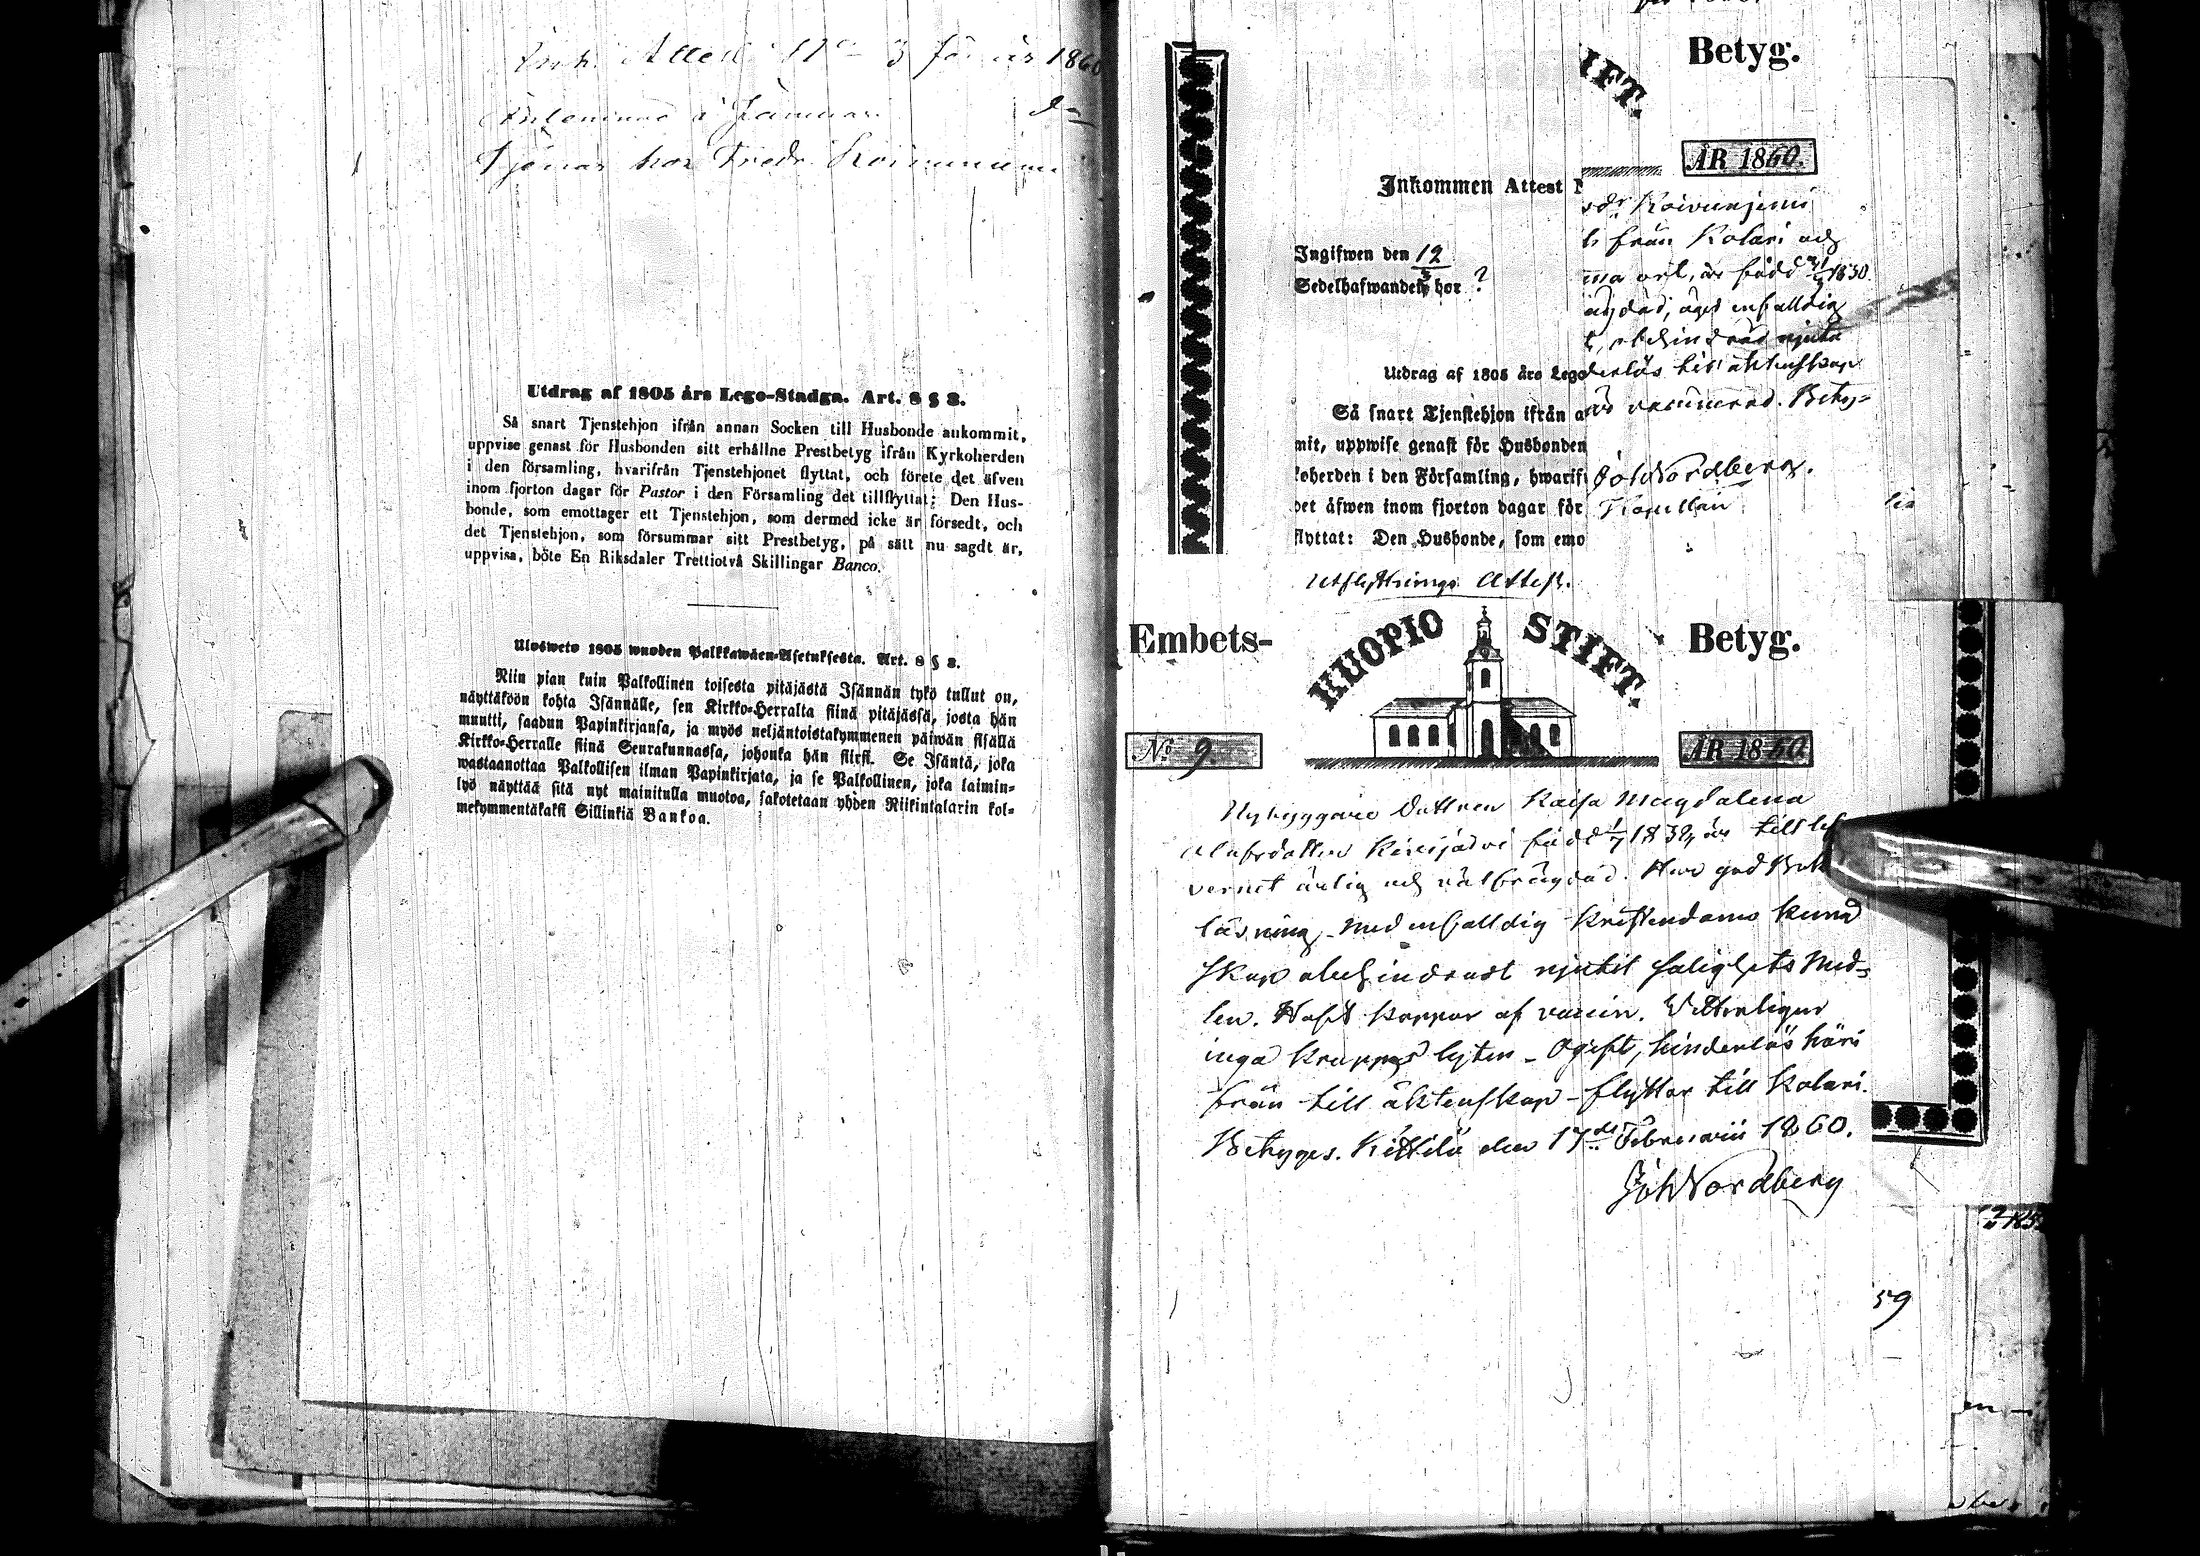 Ink. Attest No 3 för år 1860
Inlemnad i Januari do
Tjenar hos Fredr. Koivuniemi
Utdrag af 1805 års Lego-Stadga. Art. 8 § 8.
Så snart Tjenstehjon ifrån annan Socken till Husbonde ankommit,
uppvise genast för Husbonden sitt erhållne Prestbetyg ifrån Kyrkoherden
i den församling, hvarifrån Tjenstehjonet flyttat, och förete det äfven
inom fjorton dagar för Pastor i den Församling det tillflyttat; Den Hus-
bonde, som emottager ett Tjenstehjon, som dermed icke är försedt, och
det Tjenstehjon, som försummar sitt Prestbetyg, på sätt nu sagdt är,
uppvisa, böte En Riksdaler Trettiotvå Skillingar Banco.
Ulosweto 1805 wuoden Palkkawäen-Asetuksesta. Art. 8 § 8.
Niin pian kuin Palkollinen toisesta pitäjästä Isännän tykö tullut on,
näyttäköön kohta Isännälle, sen Kirkko-Herralta siinä pitäjässä, josta hän
muutti, saadun Papinkirjansa, ja myös neljäntoistakymmenen päiwän sisällä
Kirkko-Herralle siinä Seurakunnassa, johonka hän siirsi. Se Isäntä, joka
wastaanottaa Palkollisen ilman Papinkirjata, ja se Palkollinen, joka laimin-
lyö näyttää sitä nyt mainitulla muotoa, sakotetaan yhden Riikintalarin kol-
mekymmentäkaksi Sillinkiä Bankoa.
Betyg.
IFT.
ÅR 1860.
Inkommen Attest N
Ingifwen den 12/3
Sedelhafwanden hor ?
Utdrag af 1805 års Lego
Så snart Tjenstehjon ifrån a
mit, uppwise genast för Husbonden
koherden i den Församling, hwarifr
det äfwen inom fjorton dagar för
flyttat: Den Husbonde, som emo
edr Koivuniemi
från Kolari och
ma ort, är född 1830
ägdad, äger enfalldig
t, obehindrad njuta
derlös till äktenskap
är vaccinerad. Bety-
Joh Nordberg.
Kapellan
Utflyttnings Attest.
Embets-
KUOPIO STIFT.
Betyg.
No 9.
ÅR 1860.
Nybyggare Dottren Kaisa Magdalena
Olofsdotter Kinisjärvi född 1/7 1832, är till lef
vernet ärlig och välfrägdad. Har god Bok
läsning med enfalldig Kristendoms kund
skap obehindradt njutit salighets med-
len. Haft koppor af vaccin. Vitterligen
inga kropps lyten - Ogift, hinderlös häri
från till äktenskap - flyttar till Kolari.
Betyges. Kittilä den 17de Februarii 1860.
Joh Nordberg
59